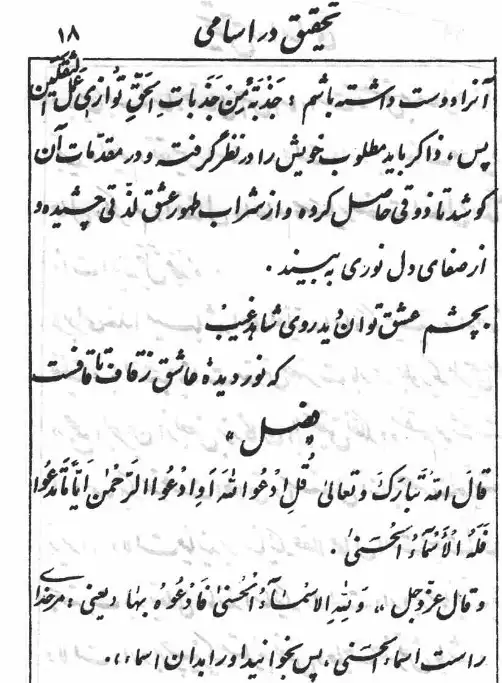 تحقیق در اسامی
۱۸
آنرا دوست داشته باشم : جَذْبَةٌ مِن جَذَباتِ الحَقِّ تُوازی عَمَلَ الثَقَلَین
پس ، ذاکر باید مطلوب خویش را در نظر گرفته و در مقدّمات آن
کوشد تا ذوقی حاصل کرده و از شراب طهور عشق لذّتی چشیده و
از صفای دل نوری به بیند .
بچشم عشق توان دید روی شاهد غیب
که نور دیدهٔ عاشق ز قاف تا قافست
فصل »
قالَ اللهُ تَبارَکَ وَ تَعالیٰ قُلِ ادْعُوا اللهَ اَوِ ادْعُوا الرَّحْمٰنَ اَیّاً مّا تَدْعُوا
فَلَهُ الْأَسْمٰآءُ الْحُسْنیٰ .
وقال عزّوجل « وَ لِلّٰهِ الاَسْمٰآءُ الْحُسْنیٰ فَادْعُوهُ بِها » یعنی : مر خدای
راست اسماء الحسنی ، پس بخوانید او را بدان اسماء .